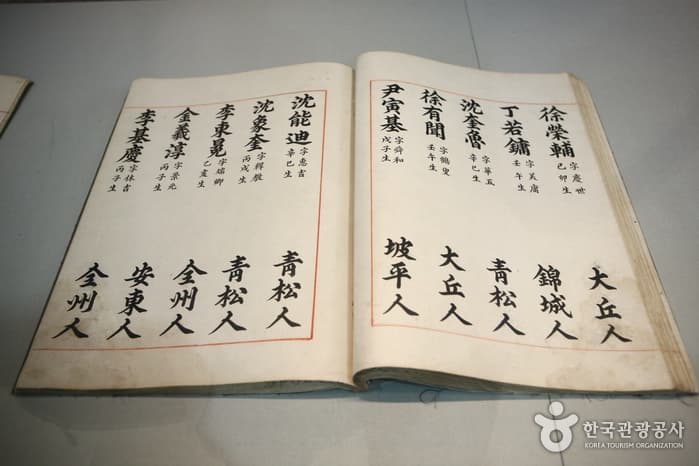 徐榮輔 字慶世 己卯生 大丘人
丁若鏞 字美庸 壬午生 錦城人
沈奎魯 字華五 辛巳生 青松人
徐有聞 字鶴叟 壬午生 大丘人
尹寅基 字舜和 戊子生 坡平人
沈能迪 字惠吉 辛巳生 青松人
沈象奎 字穉敎 丙戌生 青松人
李東冕 乙亥生 全州人
金羲淳 字景元 丙子生 安東人
李基慶 字休吉 丙子生 全州人
한국관광공사
KOREA TOURISM ORGANIZATION